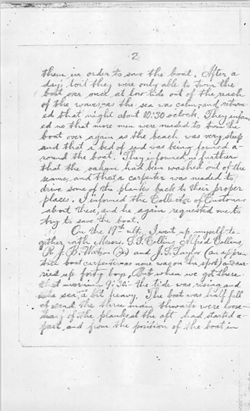 2
them in order to save the boat. After a
day's toil they were only able to turn the
boat over once at low tide out of the reach
of the waves, as the sea was calm and return-
ed that night about 10:30 o'clock. They inform
ed me that more men were needed to turn the
boat over again as the beach was very steep
and that a bed of sand was being formed a-
round the boat. They informed me further
that the oakum had been washed out of the
seams, and that a carpenter was needed to
drive some of the planks back to their proper
places. I informed the Collector of Customs
about these, and he again requested me to
try to save the boat.
On the 19th ult, I went up myself to-
gether with Messrs. Collins, Alfred Collins,
R. J. D. and J. S. Taylor
boat carpenter
ried up forty boys, but when we got there
that morning 9:30 the tide was rising and
the sea a bit heavy. The boat was half full
of sand, the three main thwarts were loose
many of the planks at the aft had started a-
part, and from the position of the boat in